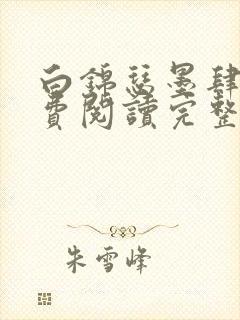 白錦瑟墨肆
費閱讀完整
朱雪峰